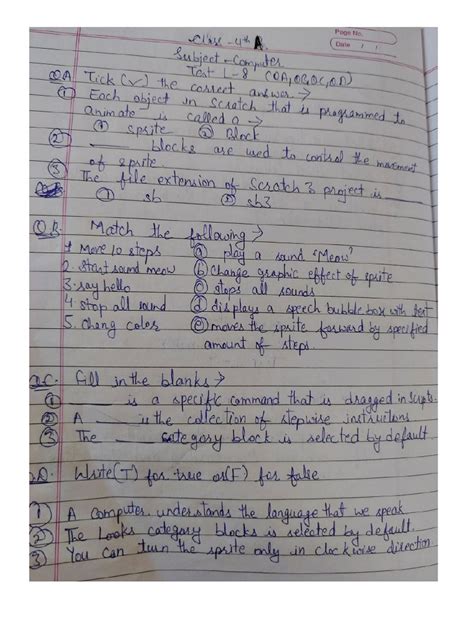 Page No.
Date / /
Class - 4th A
Subject - Computer
Test L-8 (QA, QB, QC, QD)
Q A Tick (✓) the correct answer. →
① Each object in Scratch that is programmed to
animate is called a →
① sprite ② Block
② ______ blocks are used to control the movement
of sprite.
③ The file extension of Scratch 3 project is ____
① sb ② sb3
Q.B. Match the following →
1. Move 10 steps ⓐ play a sound 'Meow'
2. start sound meow ⓑ change graphic effect of sprite
3. say hello ⓒ stops all sounds
4 stop all sound ⓓ displays a speech bubble box with text
5. Chang color ⓔ moves the sprite forward by specified
amount of steps
Q.C. Fill in the blanks →
① ______ is a specific command that is dragged in Scripts.
② A ______ is the collection of stepwise instructions
③ The ______ category block is selected by default
Q.D. Write (T) for true or (F) for false
① A computer understands the language that we speak
② The Looks category blocks is selected by default.
③ You can turn the sprite only in clockwise direction